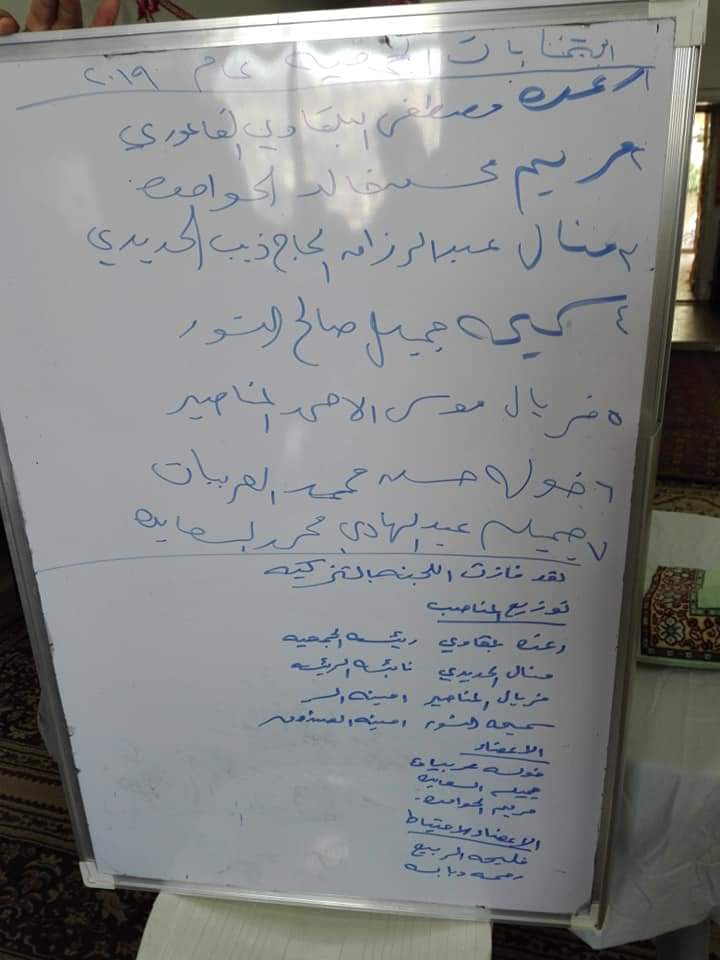 انتخابات الجمعيه عام ٢٠١٩
١ رغده مصطفى البلقاوي الفاعوري
٢ مريم محمد خالد الحوامده
٣ منال عبدالرزاق الحاج ذيب الحديدي
٤ سميحه جميل صالح النسور
٥ فريال موسى الاحمد المناصير
٦ خوله حسن محمد العربيات
٧ جميله عبدالهادي محمد السعايده
لقد فازت اللجنه بالتزكيه
توزيع المناصب
رغده بلقاوي رئيسه الجمعيه
منال الحديدي نائبه الرئيسه
فريال المناصير امينه السر
سميحه النسور امينه الصندوق
الاعضاء
خوله عربيات
جميله السعايده
مريم الحوامده
الاعضاء الاحتياط
فليحه الربيع